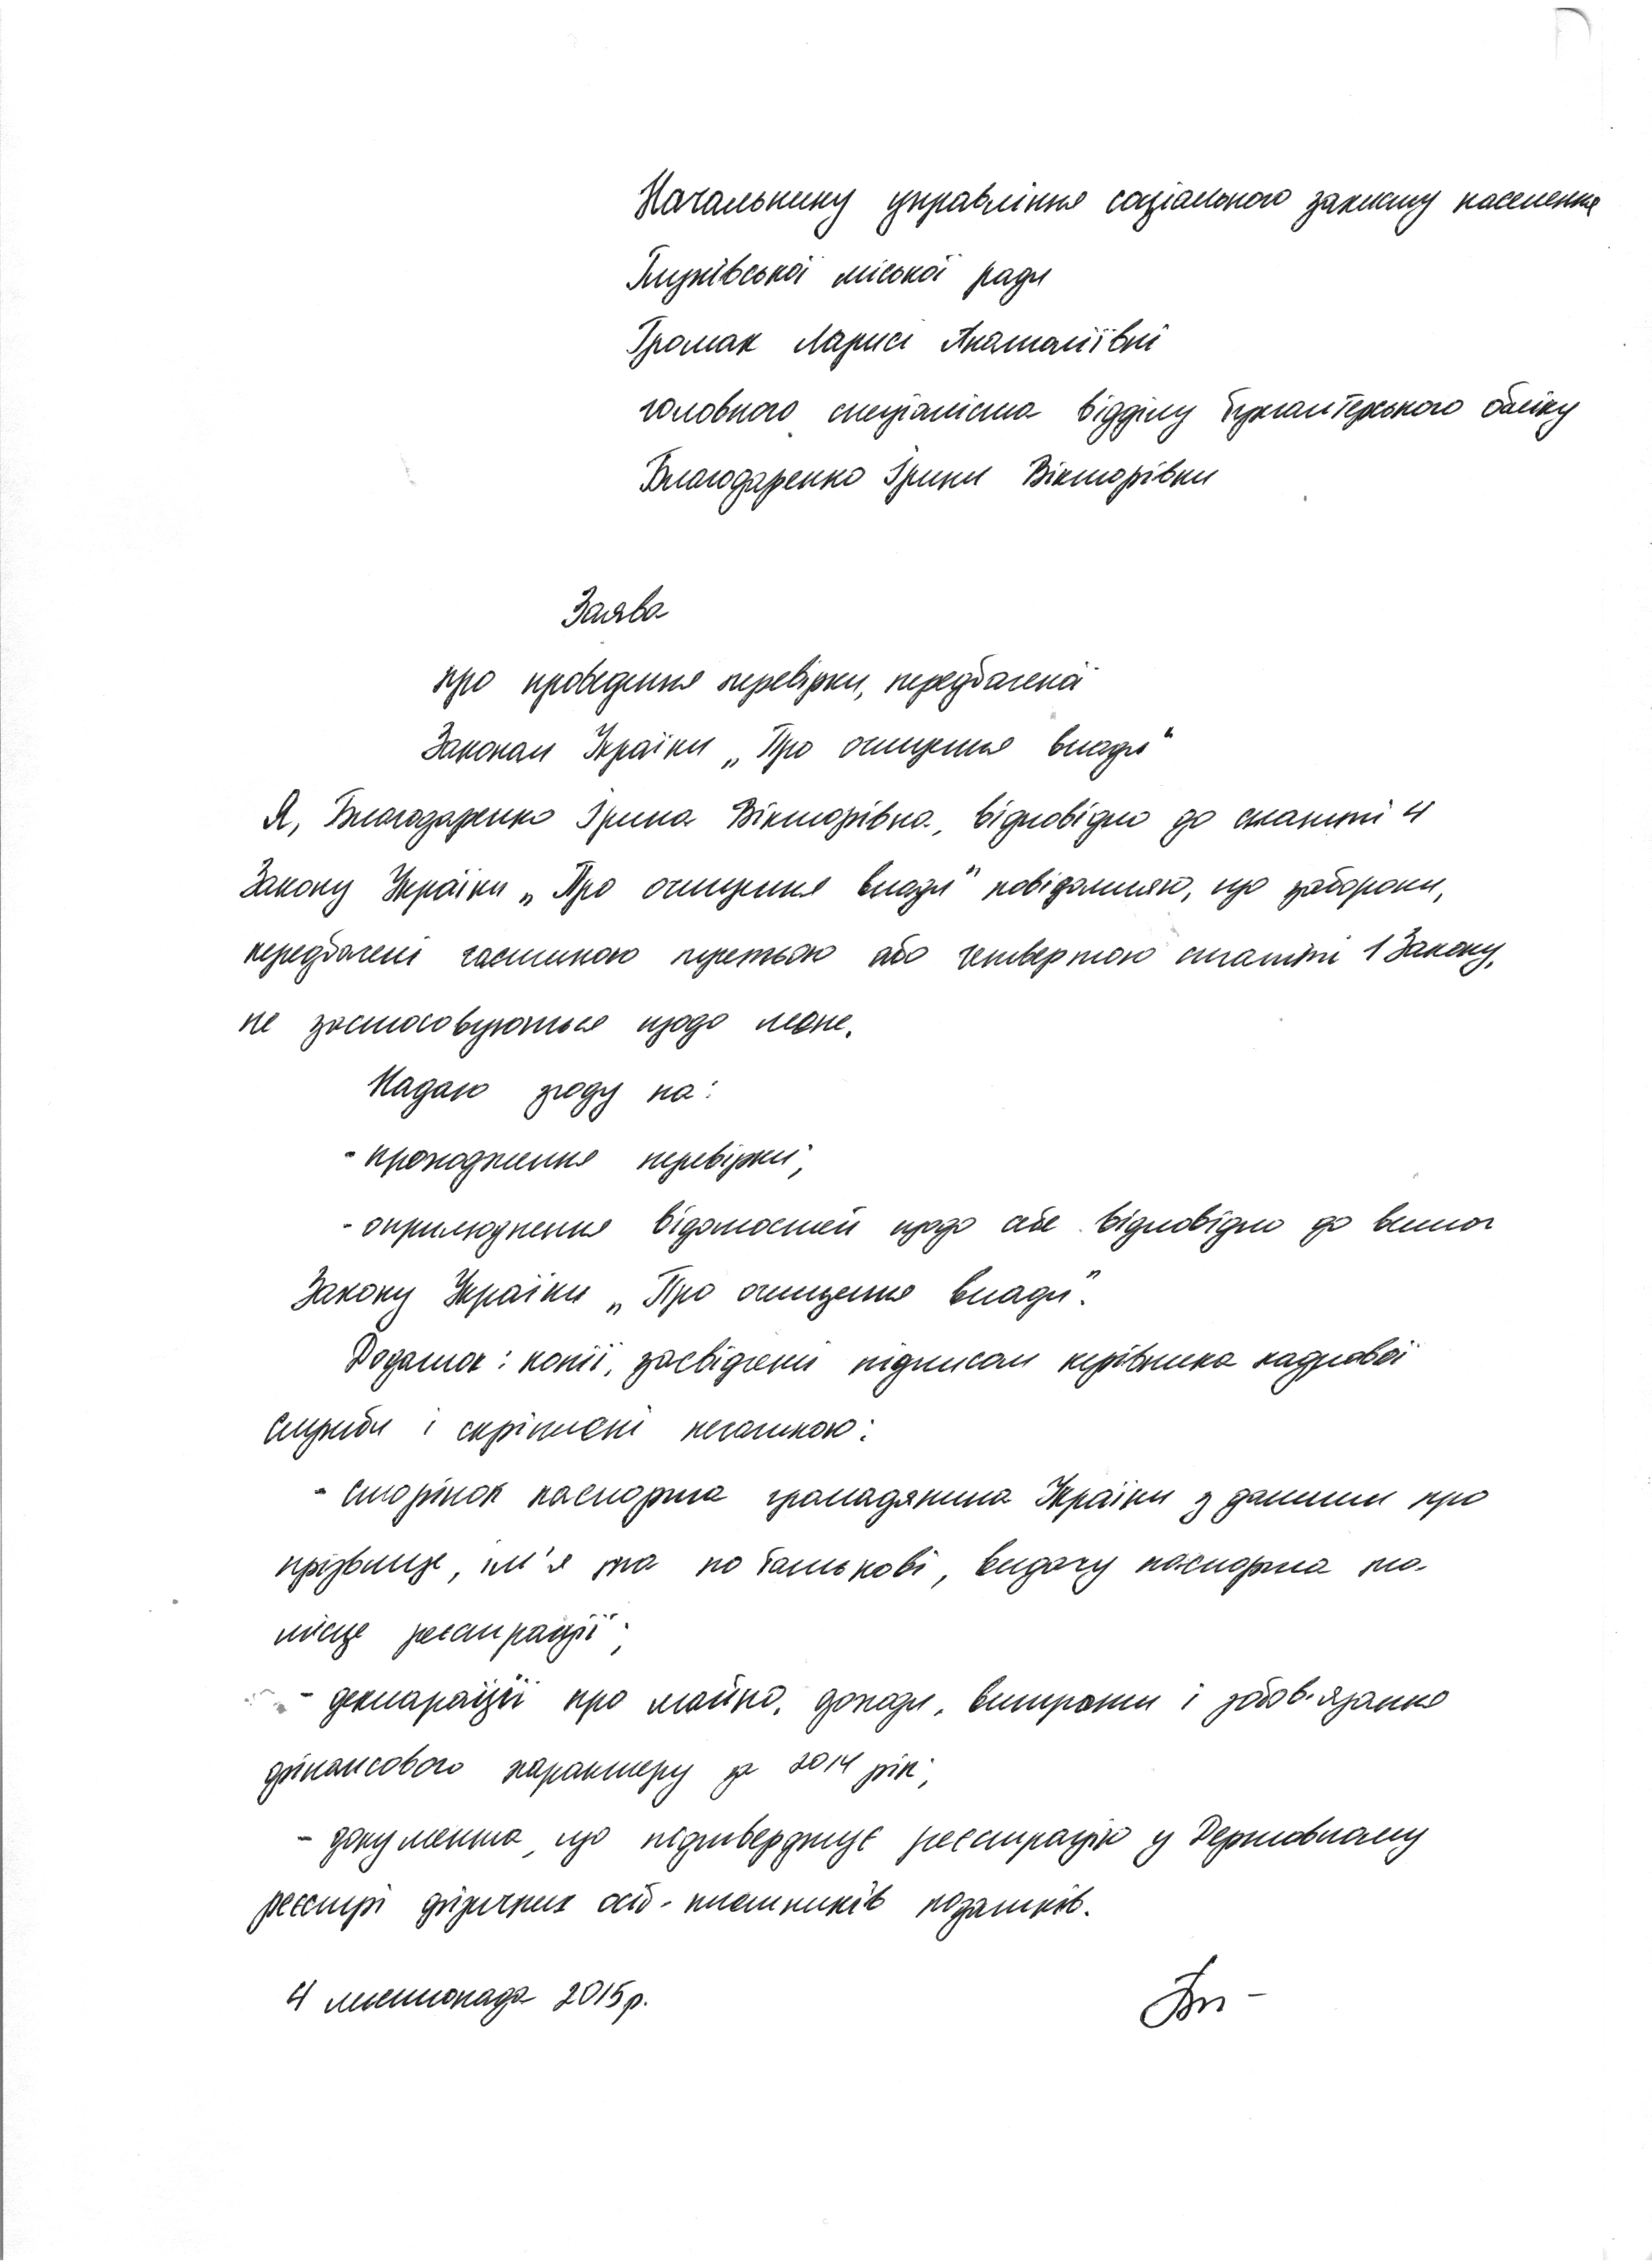 Начальнику управління соціального захисту населення
міської ради
Громак Ларисі Анатоліївні
головного спеціаліста відділу бухгалтерського обліку
Благодаренко Ірини Вікторівни
Заява
про проведення перевірки, передбаченої
Законом України „Про очищення влади"
Я, Благодаренко Ірина Вікторівна, відповідно до статті 4
Закону України „Про очищення влади" повідомляю, що заборони,
передбачені частиною третьою або четвертою статті 1 Закону,
не застосовуються щодо мене.
Надаю згоду на:
- проходження перевірки;
- оприлюднення відомостей щодо себе відповідно до вимог
Закону України „Про очищення влади".
Додаток: копії, засвідчені підписом керівника кадрової
служби і скріплені печаткою:
- сторінок паспорта громадянина України з даними про
прізвище, ім'я та по батькові, видачу паспорта та
місце реєстрації;
- декларації про майно, доходи, витрати і зобов'язання
фінансового характеру за 2014 рік;
- документа, що підтверджує реєстрацію у Державному
реєстрі фізичних осіб - платників податків.
4 листопада 2015р.